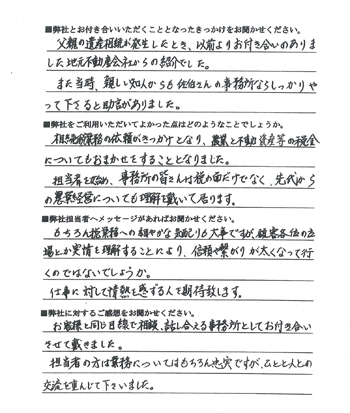 ■弊社とお付き合いいただくこととなったきっかけをお聞かせください。
父親の遺産相続が発生したとき、以前よりお付き合いのありま
した地元不動産会社からの紹介でした。
また当時、親しい知人からも佐伯さんの事務所ならしっかりや
って下さると助言がありました。
■弊社をご利用いただいてよかった点はどのようなことでしょうか。
相続税業務の依頼がきっかけとなり、農業と不動資産等の税金
についてもおまかせをすることとなりました。
担当者を始め、事務所の皆さんは税の面だけでなく、先代から
の農業経営についても理解を戴いて居ります。
■弊社担当者へメッセージがあればお聞かせください。
もちろん税業務への細やかな気配りも大事ですが、顧客各位の立
場とか実情を理解することにより、信頼や繋がりが太くなって行
くのではないでしょうか。
仕事に対して情熱を感ずる人を期待致します。
■弊社に対するご感想をお聞かせください。
お客様と同じ目線で相談、話し合える事務所としてお付き合い
させて戴きました。
担当者の方は業務についてはもちろん忠実ですが、ひとと人との
交流を重んじて下さいました。